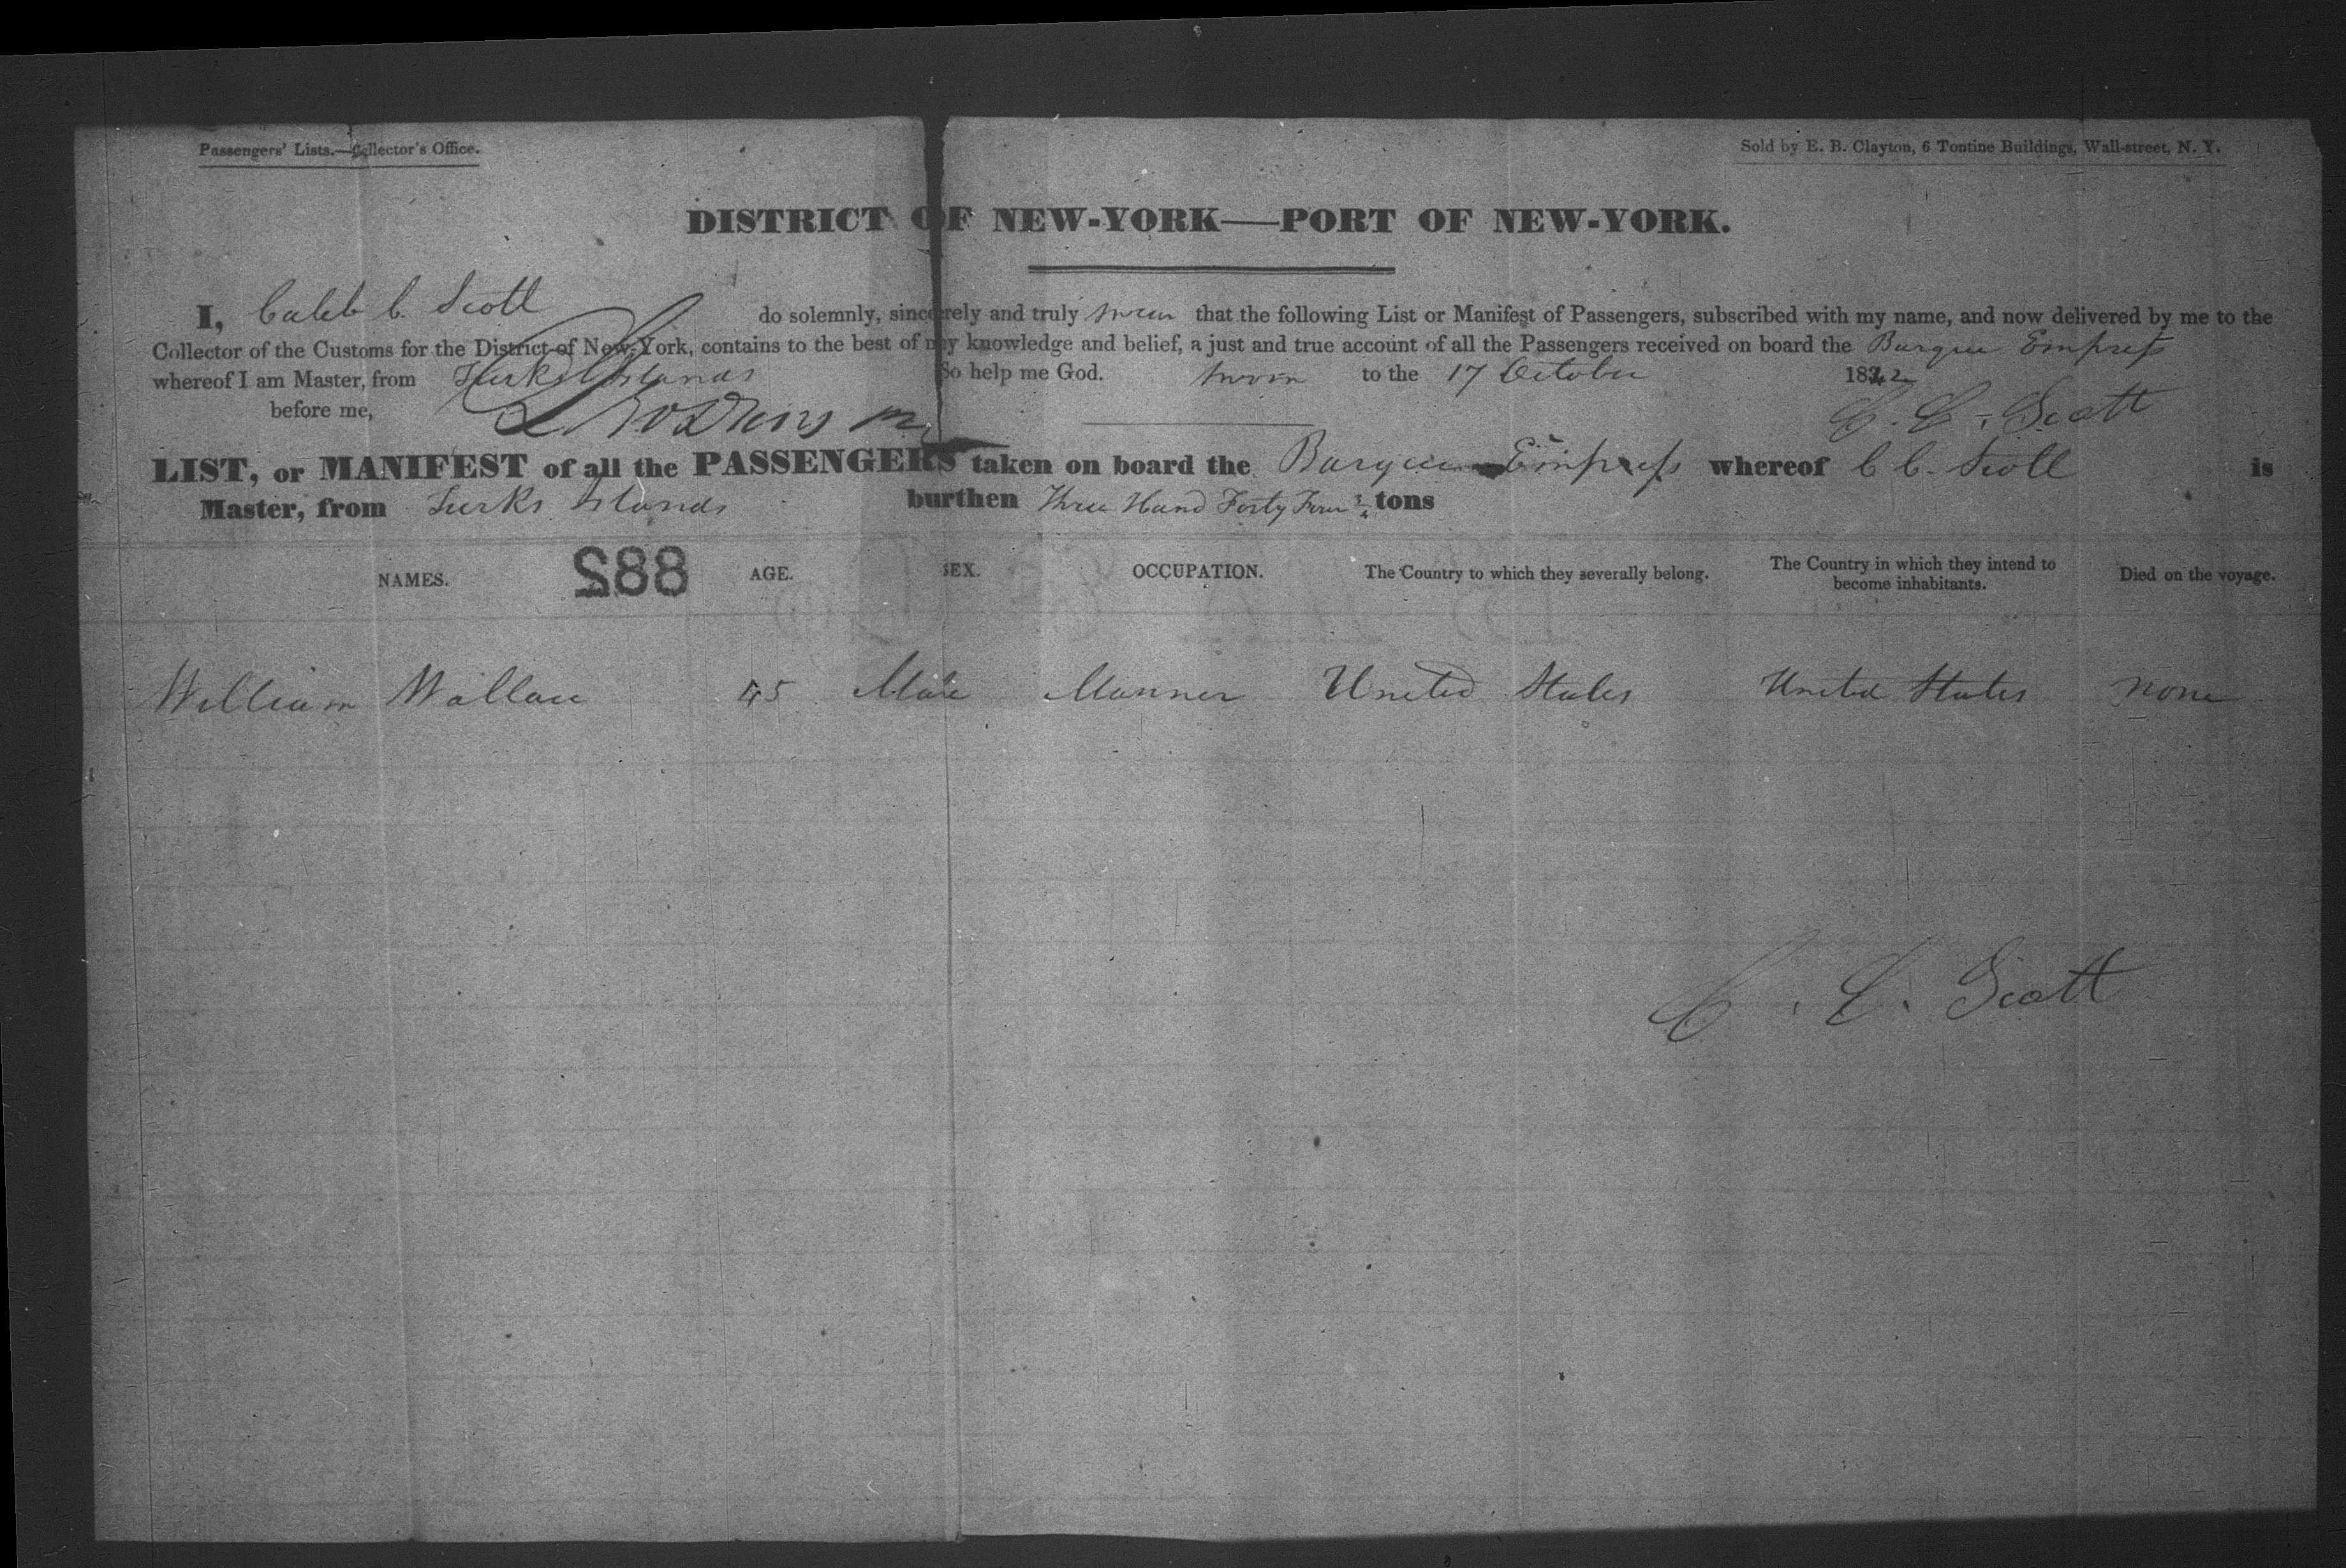 Passengers' Lists.—Collector's Office.
Sold by E. B. Clayton, 6 Tontine Buildings, Wall-street, N. Y.
DISTRICT OF NEW-YORK—PORT OF NEW-YORK.
I, Caleb C. Scott do solemnly, sincerely and truly swear that the following List or Manifest of Passengers, subscribed with my name, and now delivered by me to the
Collector of the Customs for the District of New-York, contains to the best of my knowledge and belief, a just and true account of all the Passengers received on board the Barque Empress
whereof I am Master, from Turks Islands So help me God. Sworn to the 17 October 1842
before me, C. C. Scott
LIST, or MANIFEST of all the PASSENGERS taken on board the Barque Empress whereof C C. Scott is
Master, from Turks Islands burthen Three Hund Forty Four tons
NAMES. 882 AGE. SEX. OCCUPATION. The Country to which they severally belong. The Country in which they intend to become inhabitants. Died on the voyage.
William Wallace 45 Male Mariner United States United States none
C. C. Scott